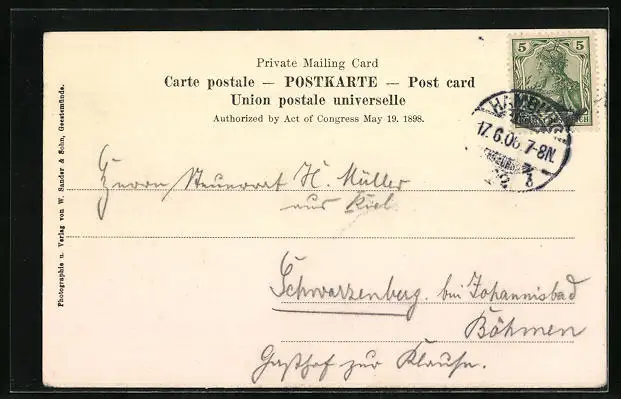 Private Mailing Card
Carte postale — POSTKARTE — Post card
Union postale universelle
Authorized by Act of Congress May 19. 1898.
5 5
REICH
HAMBURG
17.6.06. 7-8N.
Herrn Steuerrat H. Müller
aus Kiel
Schwarzenberg. bei Johannisbad
Böhmen
Gasthof zur Klause.
Photographie u. Verlag von W. Sander & Sohn, Geestemünde.